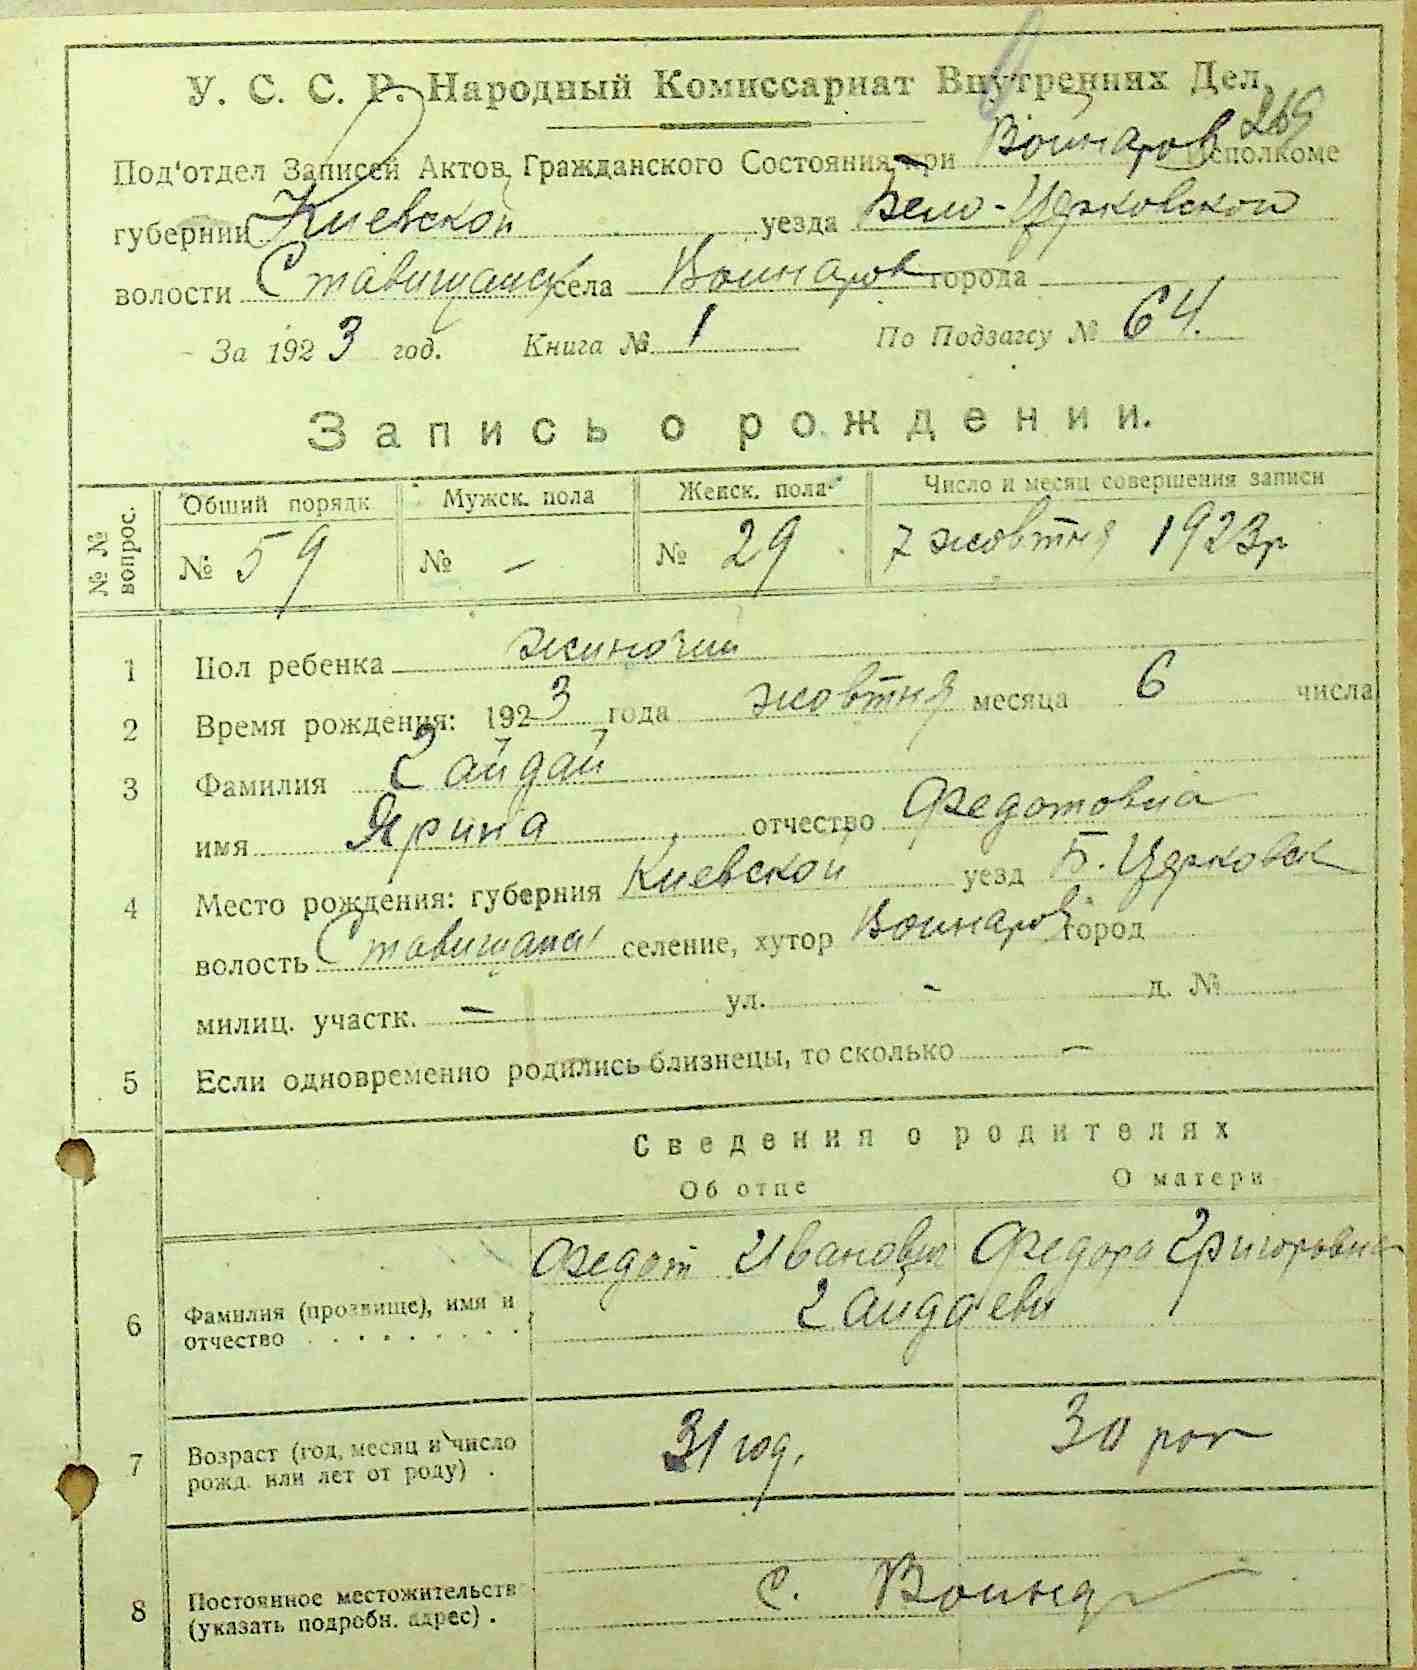 У. С. С. Р. Народный Комиссариат Внутренних Дел.
269
Под'отдел Записей Актов Гражданского Состояния при Войнаров Исполкоме
губернии Киевской уезда Бело-Церковской
волости Ставищанск села Воинаров города
За 1923 год. Книга № 1 По Подзагсу № 64.
Запись о рождении.
№ № вопрос. Общий порядк Мужск. пола Женск. пола Число и месяц совершения записи
№ 59 № - № 29 7 жовтня 1923р
1 Пол ребенка жиночий
2 Время рождения: 1923 года жовтня месяца 6 числа
3 Фамилия Гайдай
имя Ярина отчество Федотовна
4 Место рождения: губерния Киевской уезд Б. Церковск
волость Ставищанск селение, хутор Воинаров город
милиц. участк. - ул. - д. №
5 Если одновременно родились близнецы, то сколько -
Сведения о родителях
Об отце О матери
6 Фамилия (прозвище), имя и отчество Федот Иванович Федора Григоровна
Гайдаеви
7 Возраст (год, месяц и число рожд. или лет от роду) . 31 год. 30 рок
8 Постоянное местожительств (указать подробн. адрес) . с. Воинар